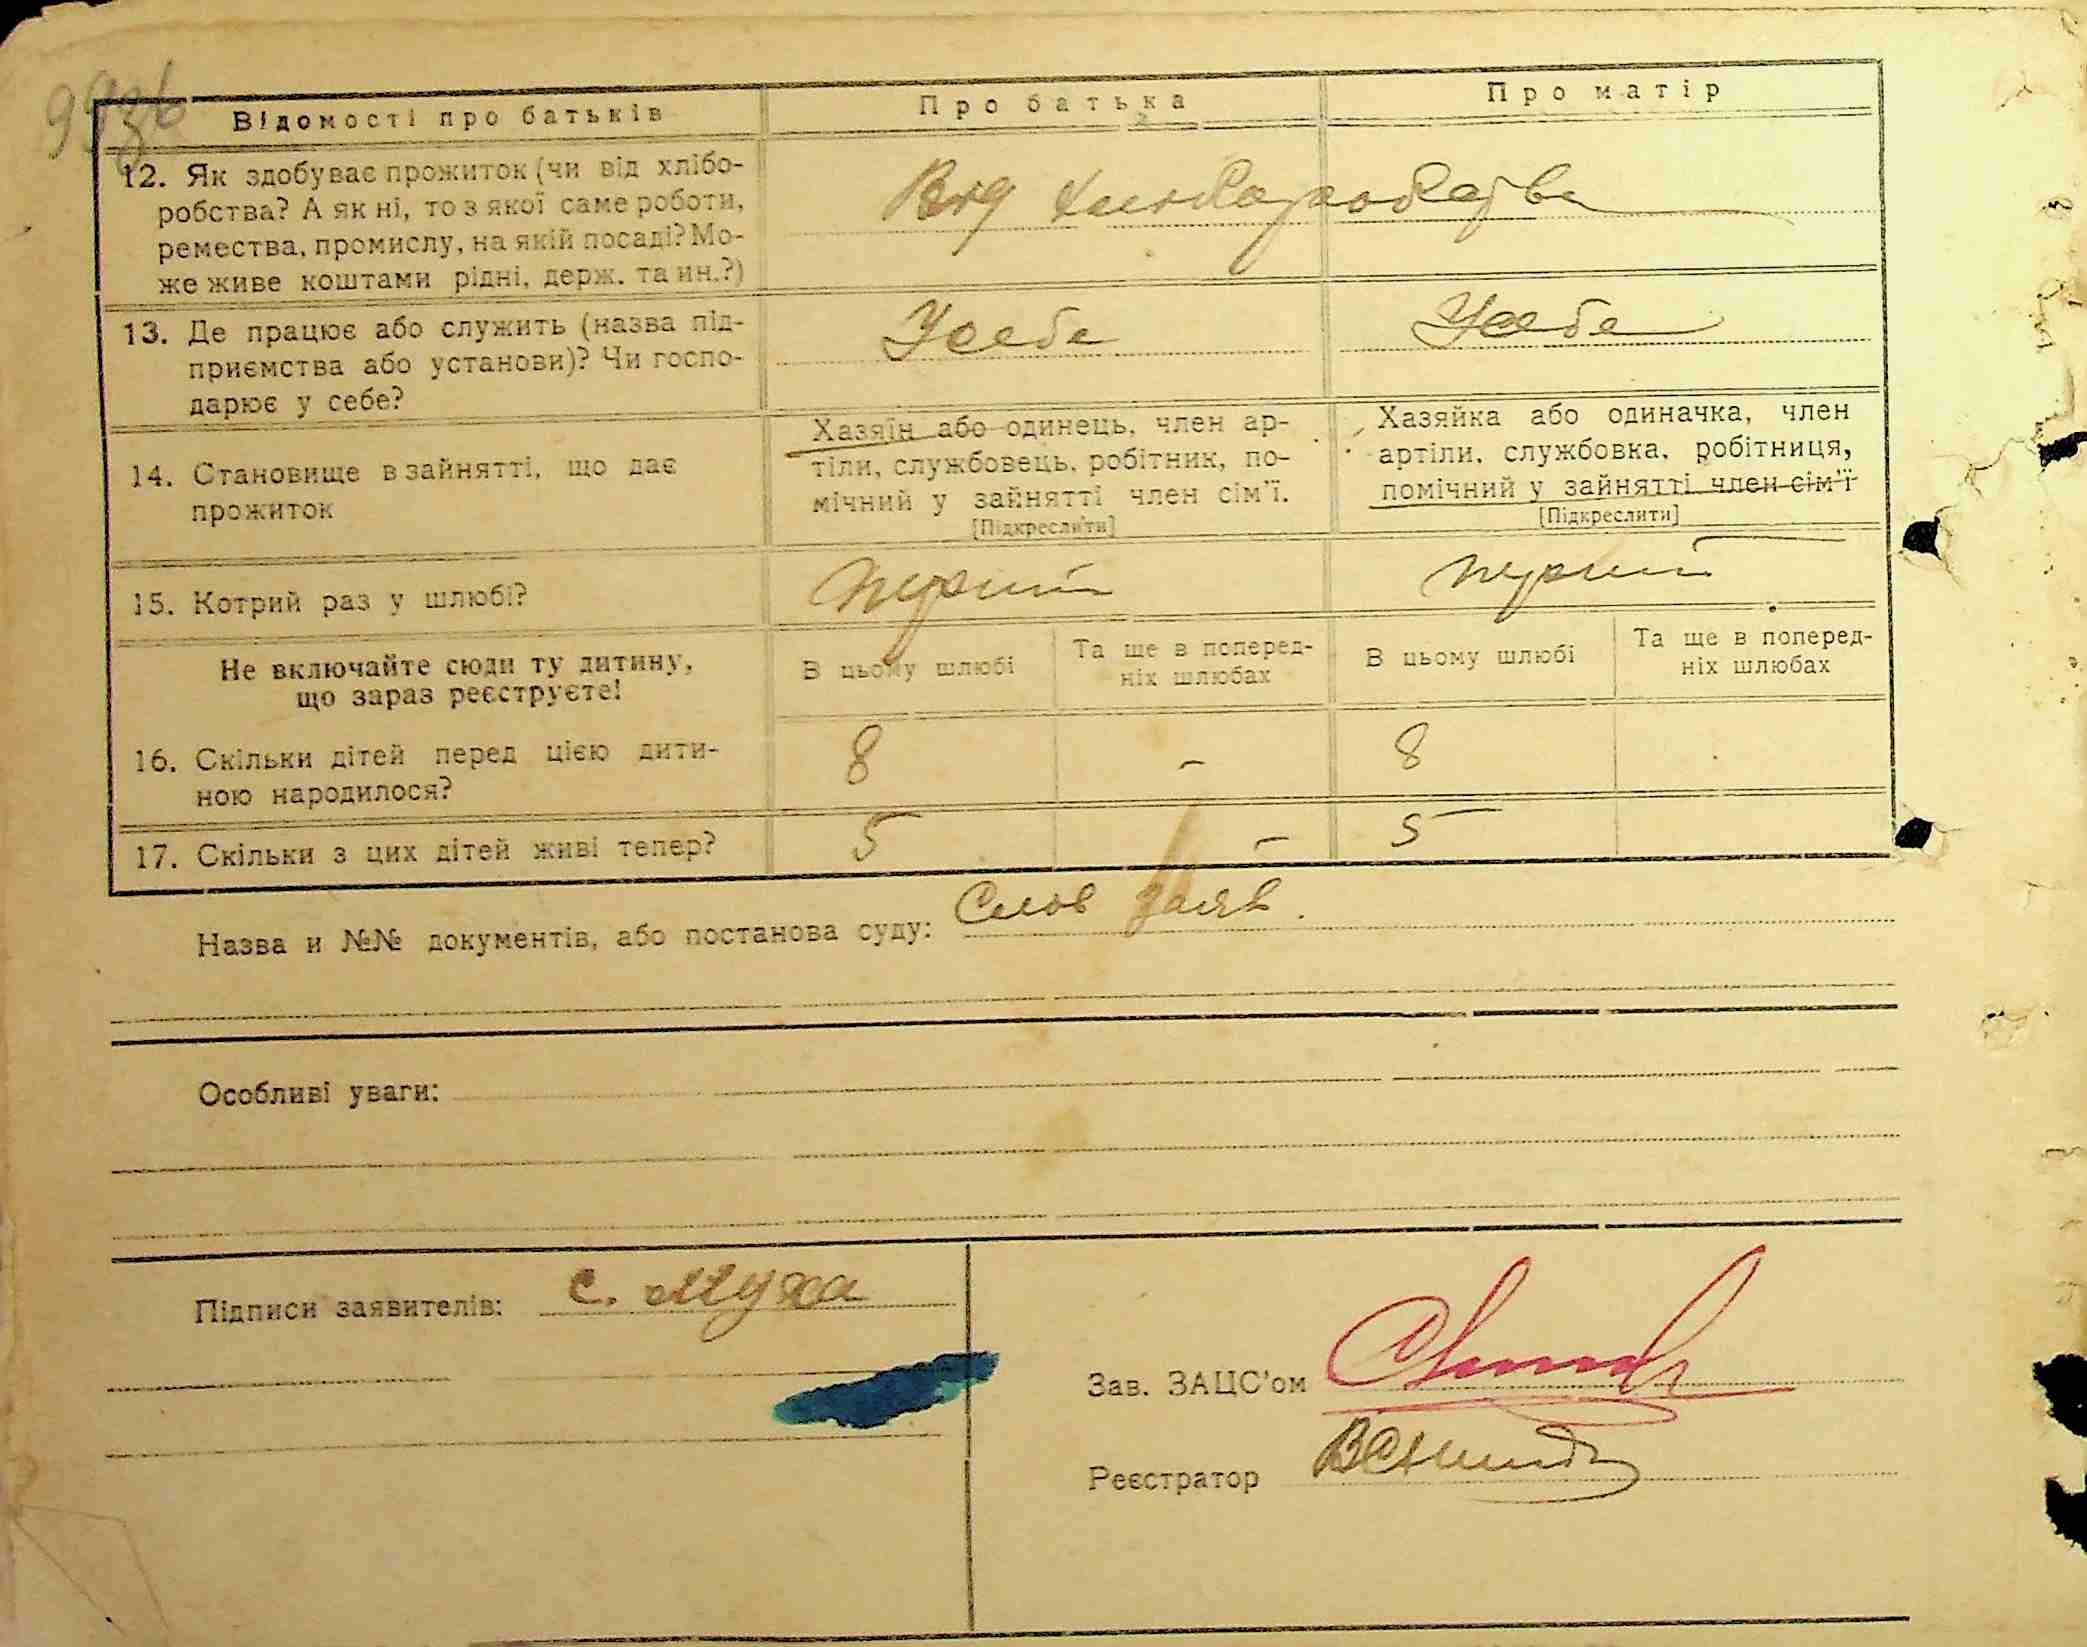 Відомості про батьків
Про батька
Про матір
12. Як здобуває прожиток (чи від хлібо-
робства? А як ні, то з якої саме роботи,
ремества, промислу, на якій посаді? Мо-
же живе коштами рідні, держ. та ин.?)
Від хліборобства
13. Де працює або служить (назва під-
приємства або установи)? Чи госпо-
дарює у себе?
У себе
У себе
14. Становище в зайнятті, що дає
прожиток
Хазяїн або одинець, член ар-
тіли, службовець, робітник, по-
мічний у зайнятті член сім'ї.
[Підкреслити]
Хазяйка або одиначка, член
артіли, службовка, робітниця,
помічний у зайнятті член сім'ї
[Підкреслити]
15. Котрий раз у шлюбі?
перший
перший
Не включайте сюди ту дитину,
що зараз реєструєте!
В цьому шлюбі
Та ще в поперед-
ніх шлюбах
В цьому шлюбі
Та ще в поперед-
ніх шлюбах
16. Скільки дітей перед цією дити-
ною народилося?
8
–
8
17. Скільки з цих дітей живі тепер?
5
–
5
Назва и №№ документів, або постанова суду: Слов заяв.
Особливі уваги:
Підписи заявителів: С. Муха
Зав. ЗАЦС'ом
Реєстратор